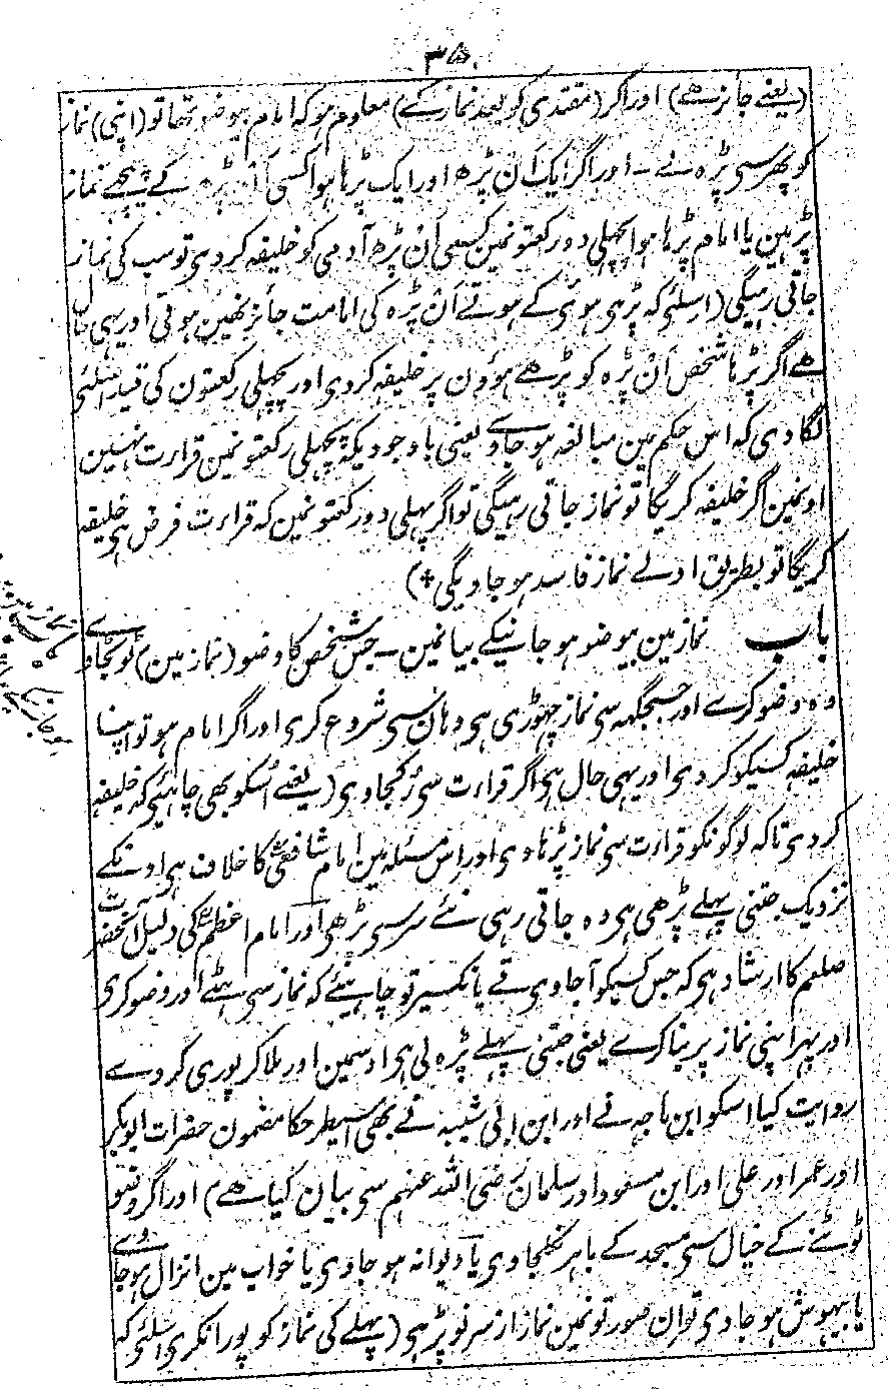 ۳۵
(یعنے جائز ھے) اور اگر (مقتدی کو بعد نماز کے) معلوم ہو کہ امام بیوضو تھا تو (اپنی) نماز
کو پھر سی پڑہ لے ۔ اور اگر ایک اَن پڑھ اور ایک پڑہا ہوا کسی اَن پڑہ کے پیچھے نماز
پڑہین یا امام پڑہا ہوا پچھلی دو رکعتونمین کسی اَن پڑھ آدمی کو خلیفہ کردی تو سب کی نماز
جاتی رہیگی (اسلئی کہ پڑہی ہوئی کے ہوتے اَن پڑہ کی امامت جائز نھین ہوتی اور یہی حال
ھے اگر پڑہا شخص اَن پڑہ کو پڑھے ہوؤن پر خلیفہ کردی اور پچھلی رکعتون کی قید اسلئی
لگا دی کہ اس حکم مین مبالغہ ہو جاوے یعنی باوجودیکہ پچھلی رکعتونمین قراءت نہین
اونمین اگر خلیفہ کریگا تو نماز جاتی رہیگی تو اگر پہلی دو رکعتونمین کہ قراءت فرض ہی خلیفہ
کریگا تو بطریق اولے نماز فاسد ہو جاویگی *)
باب نماز مین بیوضو ہو جانیکے بیانمین ۔ جس شخص کا وضو (نماز مین) ٹوٹجاوے
وہ وضو کرے اور جسجگہہ سی نماز چھوڑی ہی وہان سی شروع کری اور اگر امام ہو تو اپنا
خلیفہ کسیکو کردی اور یہی حال ہی اگر قراءت سی رُکجاوی (یعنے اُسکو بھی چاہیئی کہ خلیفہ
کردی تاکہ لوگونکو قراءت سی نماز پڑہاوی اور اس مسئلہ مین امام شافعیؒ کا خلاف ہی اونکے
نزدیک جتنی پہلے پڑھی ہی وہ جاتی رہی نئے سر سی پڑھی اور امام اعظمؒ کی دلیل آنحضرت
صلعم کا ارشاد ہی کہ جس کسیکو آجاوی قے یا نکسیر تو چاہیئے کہ نماز سی ہٹے اور وضو کری
اور پھر اپنی نماز پر بنا کرے یعنی جتنی پہلے پڑہ لی ہی اوسمین اور ملا کر پوری کر دے
روایت کیا اسکو ابن ماجہ نے اور ابن ابی شیبہ نے بھی اسیطرحکا مضمون حضرات ابو بکر
اور عمر اور علی اور ابن مسعود اور سلمان رضی اللہ عنہم سی بیان کیا ھے) اور اگر وضو
ٹوٹنے کے خیال سی مسجد کے باہر نکلجاوی یا دیوانہ ہو جاوی یا خواب مین انزال ہو جاوے
یا بیہوش ہو جاوی تو ان صورتونمین نماز از سر نو پڑہی (پہلے کی نماز کو پورا نکری اسلئی کہ